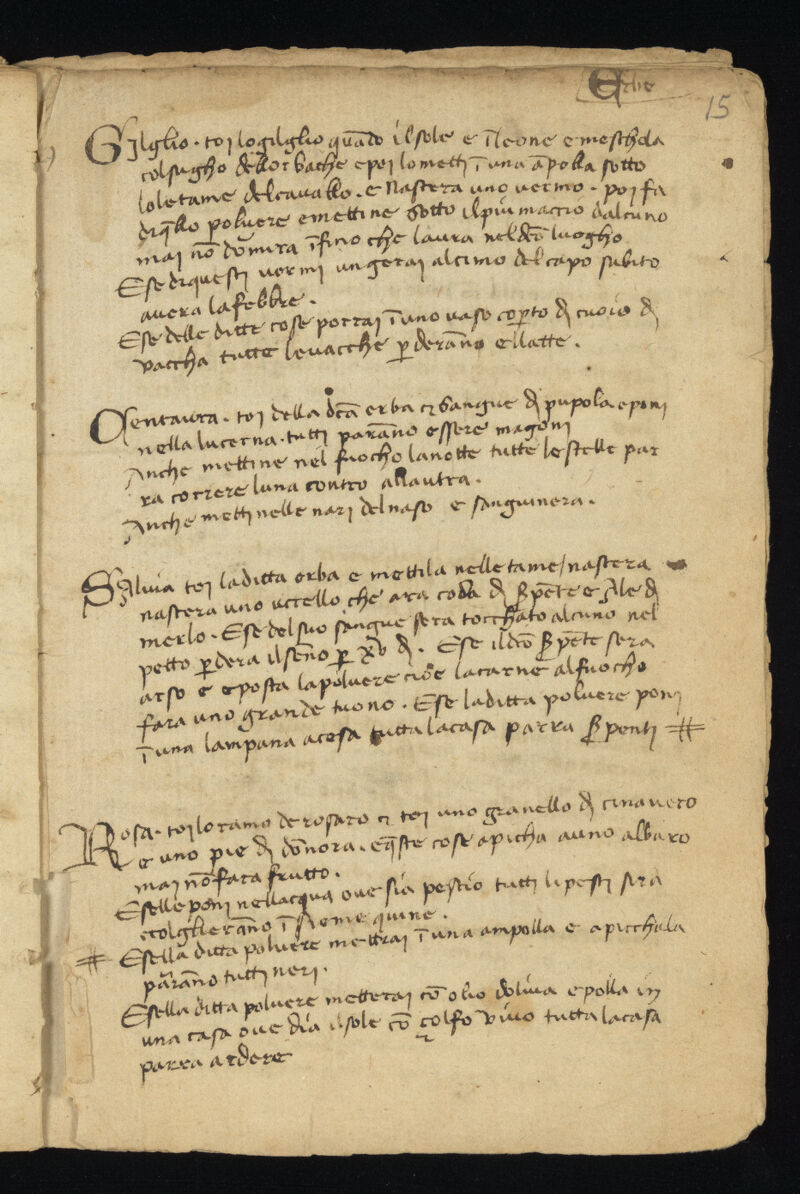 Erbe
15
Gilglio · toi logilglio quãdo il sole e ĩ leone e meschola
col sugho dellorbache e poi lo metti ĩ una ãpolla sotto
lo letame del cavallo · e Nascera uno vermo · poi fa
di q̃llo polvere e mettine sotto il piumaccio dalcuno
mai nõ dormira ĩfino che laura nel dc̃o luogho
E se di questi vermi ungerai alcimo del capo subito
avera la febbre ·
E se delle ditte cose porrai ĩ uno vaso cop̃to d̃ cuoio d̃
vaccha tutte le vacche p̃derãno el latte ·
Centaura · toi della dc̃a erba et sangue d̃ pupola e poni
nella lucerna · tutti parãno essere magoni
Anche mettine nel fuocho la notte tutte le stelle par
ra correre luna contro allautra ·
Anche metti nelle nari del naso e sanguinera ·
Salvia toi la ditta erba e mettila nelletame / nascera
nascera uno uccello che ara coda d̃ s̃pẽte e Ale d̃
merlo · E se del suo sangue sera tocchato alcuno nel
petto p̃dera il sẽno p̃ xv d̃ · E se il dc̃o s̃pẽte sera
arso e e posta la polvere cioe la carne al fuocho
fara uno grande tuono · E se la ditta polvere poni
ĩ una lampana acesa tutta la casa parra s̃penti #
Rosa · toi lo ramo de rosaro et toi uno granello d̃ cinavero
e uno pie d̃ dõnora · e q̃ste cose apicha a uno albaro
mai nõ fara frutto ·
E selle poni nellacqua ove sia pescio tutti li pesci sira
ccolglierãno ĩsieme quine ·
# E sella ditta polvere mettrai ĩ una ampolla e apicchala
parãno tutti neri ·
E sella ditta polvere metterai cõ olio doliva e polla in
una casa ove dia il sole cõ çolfo vivo tutta la casa
parra ardere